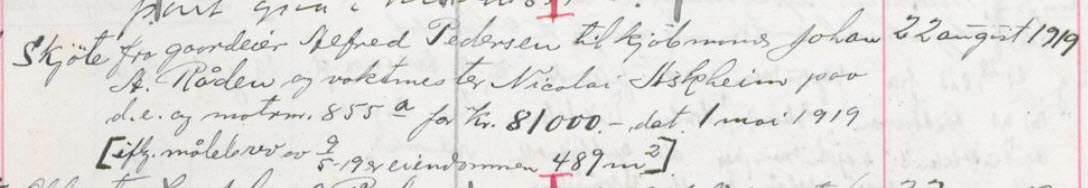 Skjöte fra gaardeier Alfred Pedersen til kjöbmand Johan 22 august 1919
A. Råden og vaktmester Nicolai Askheim paa
d.e. og matrnr. 855 a for Kr. 81000.- dat. 1 mai 1919
[iflg. målebrev av 9/5-19 er eiendommen 489 m2]